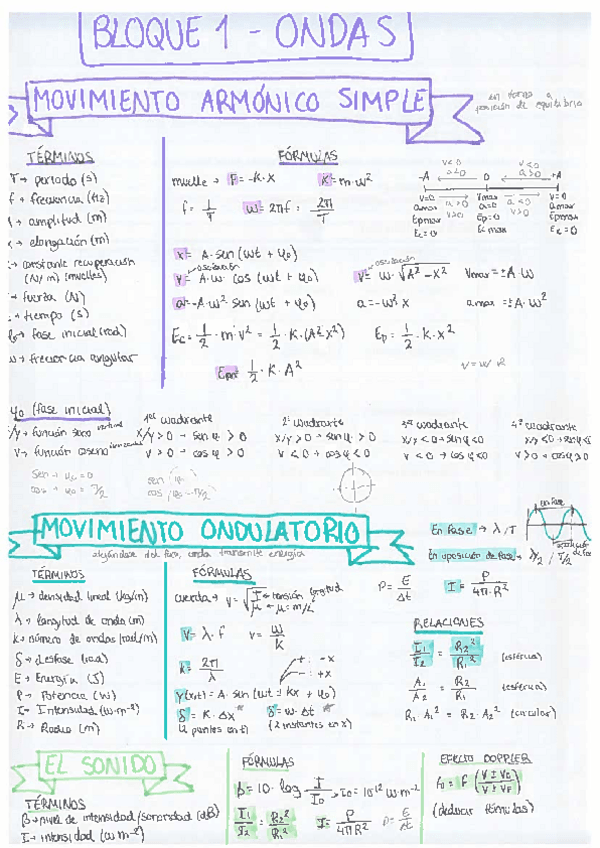 BLOQUE 1 - ONDAS
MOVIMIENTO ARMÓNICO SIMPLE
en torno a
posición de equilibrio
TÉRMINOS
T → periodo (s)
f → frecuencia (Hz)
→ amplitud (m)
→ elongación (m)
→ constante recuperación
(N/m) (muelles)
→ fuerza (N)
→ tiempo (s)
→ fase inicial (rad)
ω → frecuencia angular
FÓRMULAS
muelle → F = -K·x
K = m·ω²
f = 1/T
ω = 2πf = 2π/T
x = A·sen (ωt + φ₀)
oscilación
v = A·ω cos (ωt + φ₀)
a = -A·ω² sen (ωt + φ₀)
oscilación
v = ω·√(A² - x²)
Vmax = ±A·ω
a = -ω²·x
amax = ±A·ω²
Ec = 1/2·m·v² = 1/2·K·(A²-x²)
Ep = 1/2·K·x²
1/2·K·A²
-A
O
+A
v<0
a>0
v>0
v=0
amax
Epmax
Ec=0
Vmax
a=0
Ep=0
Ec max
v=0
amax
Epmax
Ec=0
φ₀ (fase inicial)
X/Y → función seno vertical
V → función coseno horizontal
1er cuadrante
X/Y > 0 → sen φ > 0
V > 0 → cos φ > 0
2º cuadrante
X/Y > 0 → sen φ > 0
V < 0 → cos φ < 0
3er cuadrante
X/Y < 0 → sen φ < 0
V < 0 → cos φ < 0
4º cuadrante
X/Y < 0 → sen φ <
V > 0 → cos φ > 0
MOVIMIENTO ONDULATORIO
alejándose del foco, onda transmite energía
En fase → λ / T
En oposición de fase → λ/2 / T/2
en fase
TÉRMINOS
μ → densidad lineal (kg/m)
λ → longitud de onda (m)
K → número de ondas (rad/m)
δ → desfase (rad)
E → Energía (J)
P → Potencia (W)
I → Intensidad (W·m⁻²)
R → Radio (m)
FÓRMULAS
cuerda → v = √(T/μ)
← tensión
← μ = m/L
P = E/Δt
I = P/4π·R²
V = λ·f
v = ω/K
K = 2π/λ
+ → -x
- → +x
y(x,t) = A·sen (ωt ± Kx + φ₀)
δ = K·Δx
(2 puntos en t)
δ = ω·Δt
(2 instantes en x)
RELACIONES
I₁/I₂ = R₂²/R₁² (esférica)
A₁/A₂ = R₂/R₁ (esférica)
R₁·A₁² = R₂·A₂² (circular)
EL SONIDO
TÉRMINOS
β → nivel de intensidad/sonoridad (dB)
I → intensidad (W·m⁻²)
FÓRMULAS
β = 10·log I/I₀ → I₀ = 10¹² W·m⁻²
I₁/I₂ = R₂²/R₁²
I = P/4πR²
P = E/Δt
EFECTO DOPPLER
(deducir fórmulas)